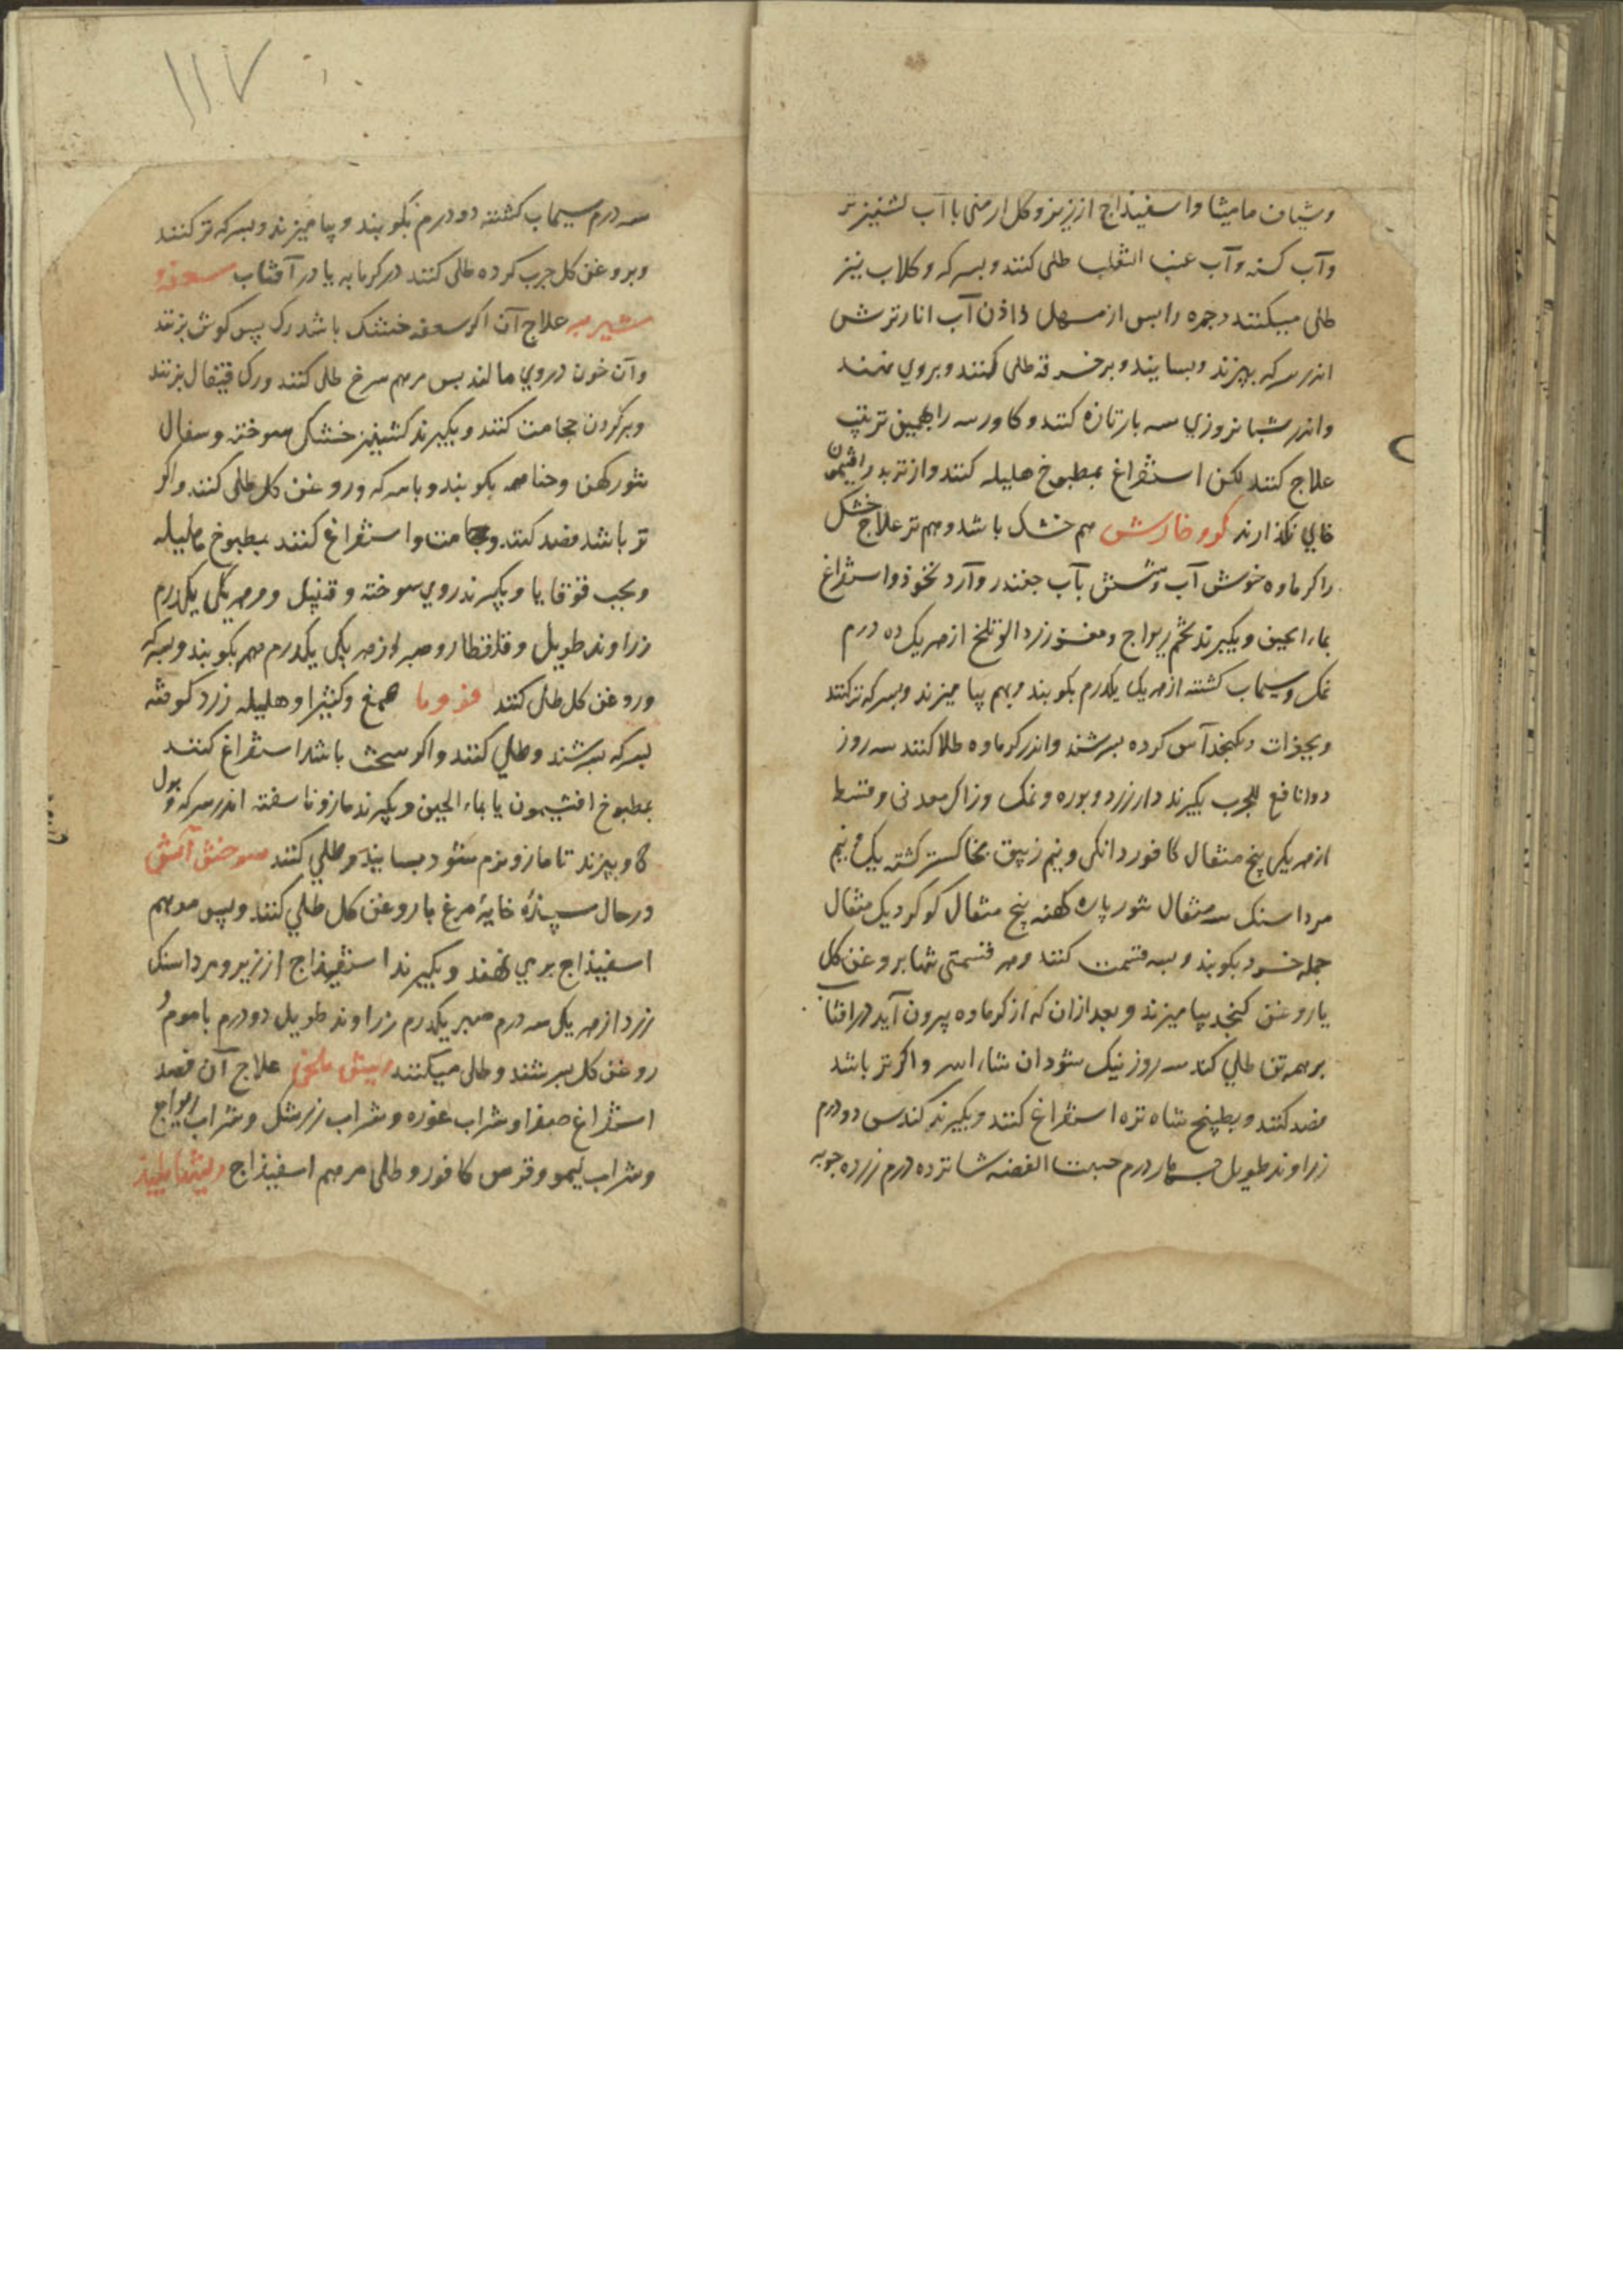 وشیاف مامیثا واسفیذاج ارزیز وکل ارمنی باآب کشنیز تر
وآب کسنه وآب عنب الثعلب طلی کنند وبسرکه وکلاب نیز
طلی میکنند وجمره را بس از مسهل داذن آب انار ترش
اندر سرکه بپزند وبسایند وبر خرقه طلی کنند وبروی نهند
واندر شبانروزی سه بار تازه کنند وکاورسه را بهمین ترتیب
علاج کنند لکن استفراغ بمطبوخ هلیله کنند واز تربد وافتیمون
خالی نکذارند کر وخارش هم خشک باشد وهم تر علاج خشک
را کرماوه خوش آب وشستن بآب جغندر وآرد نخوذ واستفراغ
بماء الجبن وبکیرند تخم ریواج ومغز زردالو تلخ از هر یک ده درم
نمک وسیماب کشته از هر یکی یکدرم بکوبند وبهم بیامیزند وبسرکه تر کنند
وبجغرات وکنجذ آس کرده بسرشند واندر کرماوه طلا کنند سه روز
دوا نافع للجرب بکیرند دار زرد وبوره ونمک وزاک معدنی وقسط
از هر یکی پنج مثقال کافور دانکی ونیم زیبق بخاکستر کشته یک ونیم
مرداسنک سه مثقال شور پاره کهنه پنج مثقال کوکرد یک مثقال
جمله خرد بکوبند وبسه قسمت کنند وهر قسمتی شبها بروغن کل
یا روغن کنجد بیامیزند وبعد ازان که از کرماوه بیرون آید در افتاب
بر همه تن طلی کند سه روز نیک شود ان شاء الله واکر تر باشد
فصد کنند وبطبیخ شاه تره استفراغ کنند وبکیرند کندس دو درم
زراوند طویل چهار درم خبث الفضه شانزده درم زرده جوبه
۱۱۷
سه درم سیماب کشته دو درم بکوبند وبیامیزند وبسرکه تر کنند
وبروغن کل جرب کرده طلی کنند در کرمابه یا در آفتاب سعفه و
شیرینه علاج آن اکر سعفه خشک باشد رک پس کوش بزنند
وآن خون در وی مالند بس مرهم سرخ طلی کنند ورک قیفال بزنند
وبر کردن حجامت کنند وبکیرند کشنیز خشک سوخته وسفال
تنور کهن وحنا همه بکوبند وباسرکه وروغن کل طلی کنند واکر
تر باشد فصد کنند وحجامت واستفراغ کنند بمطبوخ هلیله
وبحب قوقایا وبکیرند روی سوخته وقنبیل ومر هر یکی یکدرم
زراوند طویل وقلقطار وصبر از هر یکی یکدرم همه بکوبند وبسرکه
وروغن کل طلی کنند قوبا صمغ وکثیرا وهلیله زرد کوفته
بسرکه بسرشند وطلی کنند واکر سخت باشد استفراغ کنند
بمطبوخ افتیمون یا بماء الجبن وبکیرند مازو ناسفته اندر سرکه وبول
کاو بپزند تا مازو نرم شود بسایند وطلی کنند سوختن آتش
در حال سپیذه خایه مرغ با روغن کل طلی کنند وپس مرهم
اسفیذاج بروی نهند وبکیرند اسفیذاج ارزیز ومرداسنک
زرد از هر یک سه درم صبر یکدرم زراوند طویل دو درم با موم و
روغن کل بسرشند وطلی میکنند ریش بلخی علاج آن فصد
استفراغ صفرا وشراب غوره وشراب زرشک وشراب ریواج
وشراب لیمو وقرص کافور وطلی مرهم اسفیذاج ریشها پلیذ